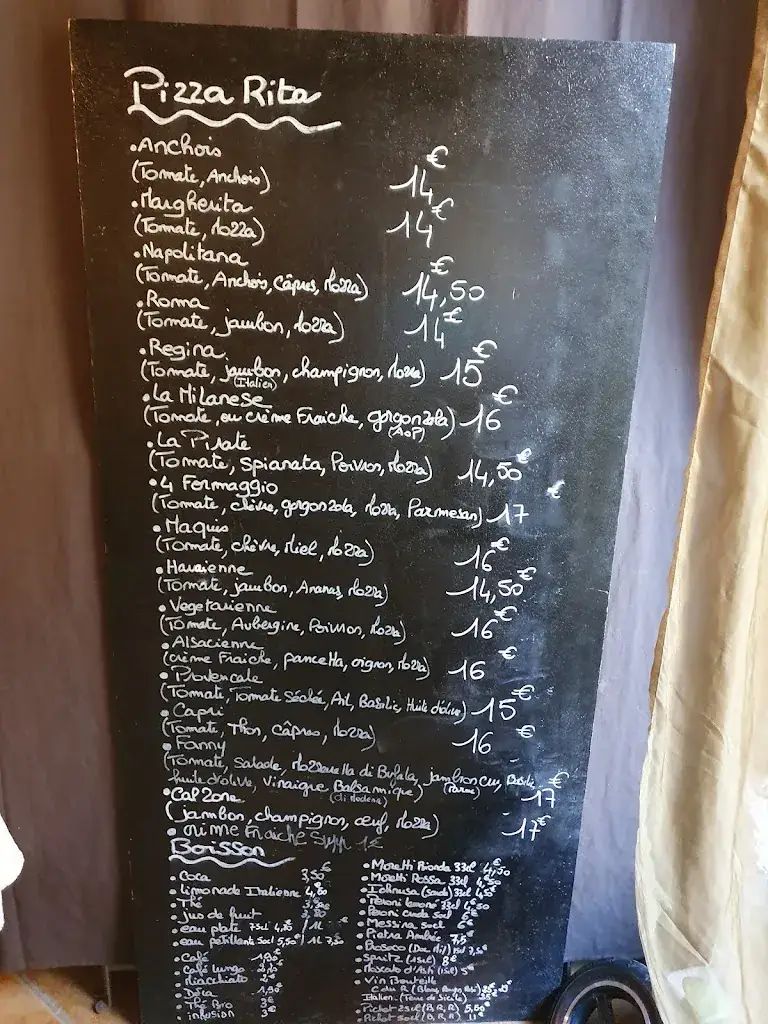 Pizza Rita
•Anchois
(Tomate, Anchois) 14€
•Margherita
(Tomate, Mozza) 14€
•Napolitana
(Tomate, Anchois, Câpres, Mozza) 14,50€
•Roma
(Tomate, jambon, Mozza) 14€
•Regina
(Tomate, jambon, champignon, Mozza) 15€
(Italien)
•La Milanese
(Tomate, ou crème Fraiche, gorgonzola) 16€
(AOP)
•La Pirate
(Tomate, Spianata, Poivron, Mozza) 14,50€
•4 Formaggio
(Tomate, chèvre, gorgonzola, Mozza, Parmesan) 17€
•Maquis
(Tomate, chèvre, Miel, Mozza) 16€
•Hawaienne
(Tomate, jambon, Ananas, Mozza) 14,50€
•Vegetarienne
(Tomate, Aubergine, Poivron, Mozza) 16€
•Alsacienne
(crème Fraiche, pancetta, oignon, Mozza) 16€
•Provencale
(Tomate, Tomate Séchée, Ail, Basilic, Huile d'olive) 15€
•Capri
(Tomate, Thon, Câpres, Mozza) 16€
•Fanny
(Tomate, Salade, Mozzarella di Bufala, jambon cru, Basilic
(Parme)
huile d'olive, vinaigre Balsamique) 17€
(di Modena)
•Calzone
(jambon, champignon, œuf, Mozza) 17€
•crème Fraiche supp 1€
Boisson
•Coca 3,50€
•Limonade Italienne 4,50
•Thé
•jus de fruit
•eau plate 75cl 4,50 / 1L
•eau pétillante 50cl 5,50€ / 1L 7,50
•Café
•Café lungo
•Macchiato
•Déca
•Thé 3€
•infusion 3€
•Moretti Bionda 33cl 4,50
•Moretti Rossa 33cl
•Ichnusa 33cl
•Peroni 33cl
•Peroni 50cl 6€
•Messina 50cl 6€
•Pietra Ambrée 7,5€
•Prosecco
•Spritz (15cl) 8€
•Moscato d'Asti (15cl) 5€
•Vin Bouteille
Italien. (Terre de Sicile)
•Pichet 25cl (B, R, R)
•Pichet 50cl (B, R, R) 11€